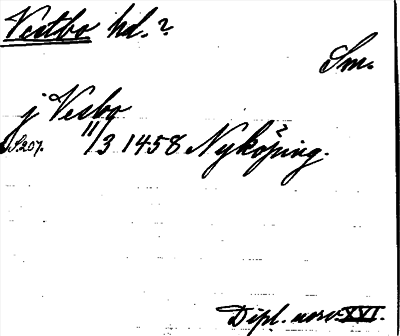 Vestbo hd.?
Sm.
j Vesbo
S207. 11/3 1458 Nyköping.
Dipl. norv. XVI.